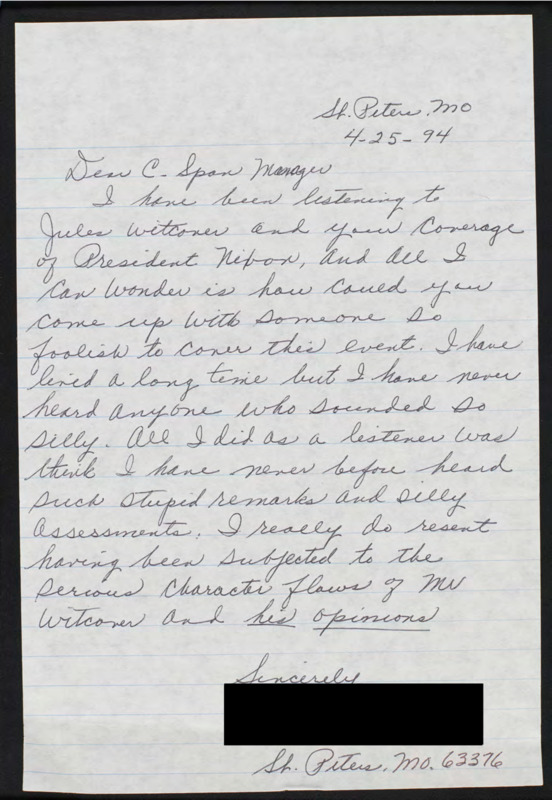 St. Peters, MO
4-25-94
Dear C-Span Manager
I have been listening to
Jules Witcover and your Coverage
of President Nixon, And All I
Can Wonder is how could you
come up with someone so
foolish to cover this event. I have
lived a long time but I have never
heard anyone who sounded so
silly. All I did as a listener was
think I have never before heard
such stupid remarks and silly
Assessments. I really do resent
having been subjected to the
serious Character flaws of Mr
Witcover and his opinions
Sincerely
St. Peters, MO. 63376